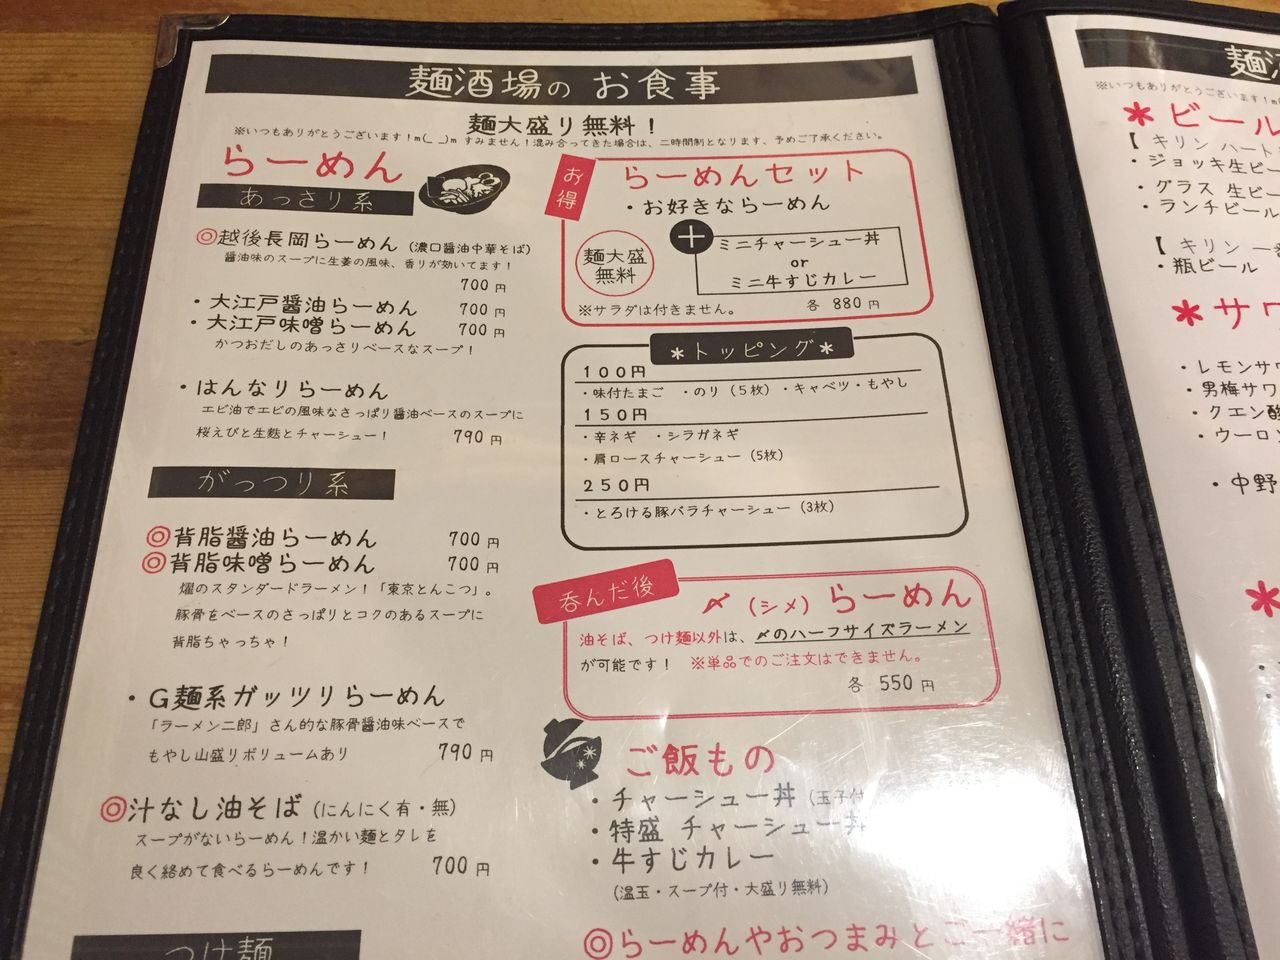 麺酒場の お食事
麺大盛り無料！
※いつもありがとうございます！m(_ _)m すみません！混み合ってきた場合は、二時間制となります、予めご了承ください。
らーめん
あっさり系
◎越後長岡らーめん（濃口醤油中華そば）
醤油味のスープに生姜の風味、香りが効いてます！
700 円
・大江戸醤油らーめん 700 円
・大江戸味噌らーめん 700 円
かつおだしのあっさりベースなスープ！
・はんなりらーめん
エビ油でエビの風味なさっぱり醤油ベースのスープに
桜えびと生麩とチャーシュー！ 790 円
がっつり系
◎背脂醤油らーめん 700 円
◎背脂味噌らーめん 700 円
燿のスタンダードラーメン！「東京とんこつ」。
豚骨をベースのさっぱりとコクのあるスープに
背脂ちゃっちゃ！
・G麺系ガッツリらーめん
「ラーメン二郎」さん的な豚骨醤油味ベースで
もやし山盛りボリュームあり 790 円
◎汁なし油そば（にんにく有・無）
スープがないらーめん！温かい麺とタレを
良く絡めて食べるらーめんです！ 700 円
つけ麺
お得
らーめんセット
・お好きならーめん
＋
麺大盛
無料
ミニチャーシュー丼
or
ミニ牛すじカレー
※サラダは付きません。 各 880 円
＊トッピング＊
100円
・味付たまご ・のり（5枚）・キャベツ・もやし
150円
・辛ネギ ・シラガネギ
・肩ロースチャーシュー（5枚）
250円
・とろける豚バラチャーシュー（3枚）
呑んだ後
〆（シメ）らーめん
油そば、つけ麺以外は、〆のハーフサイズラーメン
が可能です！ ※単品でのご注文はできません。
各 550 円
ご飯もの
・チャーシュー丼（玉子付
・特盛 チャーシュー丼
・牛すじカレー
（温玉・スープ付・大盛り無料）
◎らーめんやおつまみとご一緒に
麺
※いつもありがとうございます！m
＊ビール
【 キリン ハート
・ジョッキ生ビー
・グラス 生ビー
・ランチビール
【 キリン 一
・瓶ビール
＊サワ
・レモンサワ
・男梅サワ
・クエン酸
・ウーロン
・中野
＊